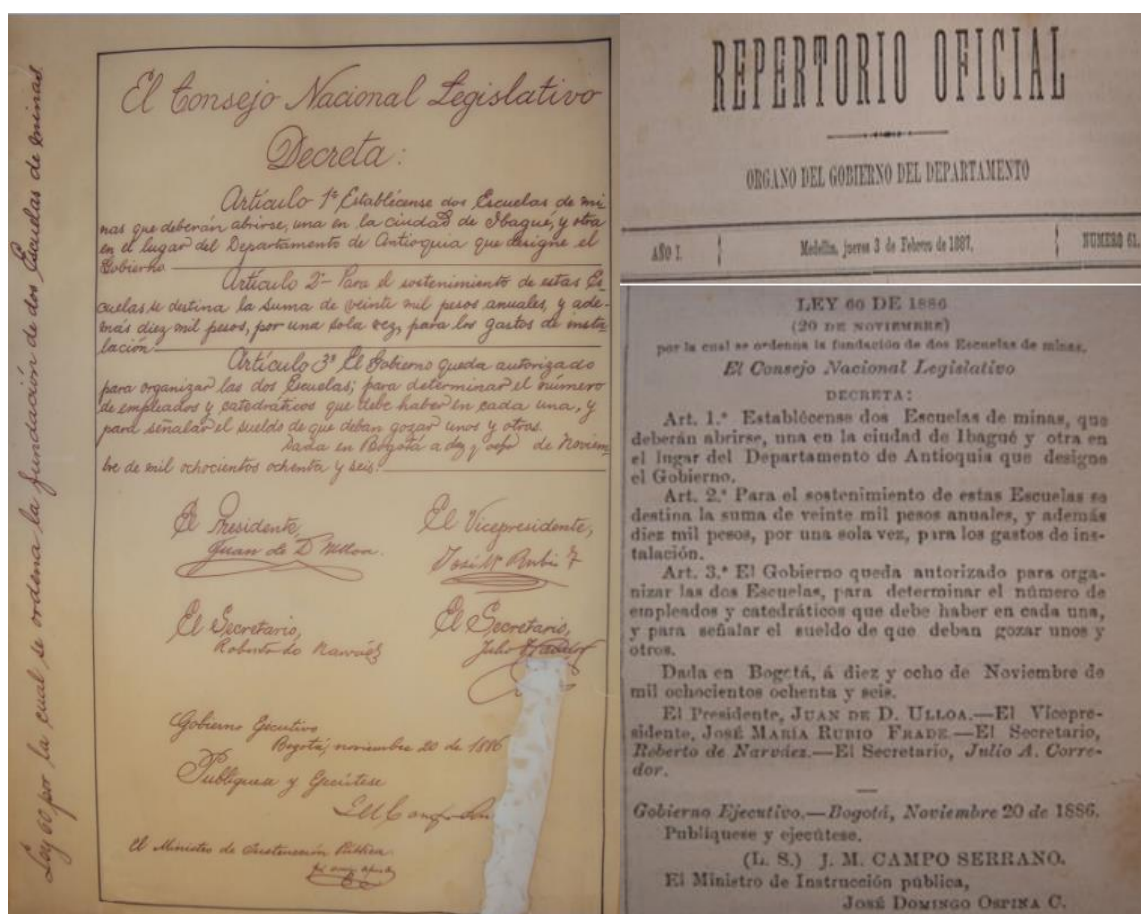 Ley 60 por la cual se ordena la fundación de dos Escuelas de minas.
El Consejo Nacional Legislativo
Decreta:
Artículo 1º Establécense dos Escuelas de mi-
nas que deberán abrirse, una en la ciudad de Ibagué, y otra
en el lugar del Departamento de Antioquia que designe el
Gobierno.
Artículo 2º Para el sostenimiento de estas Es-
cuelas se destina la suma de veinte mil pesos anuales, y ade-
más diez mil pesos, por una sola vez, para los gastos de insta-
lación.
Artículo 3º El Gobierno queda autorizado
para organizar las dos Escuelas; para determinar el número
de empleados y catedráticos que debe haber en cada una, y
para señalar el sueldo de que deban gozar unos y otros.
Dada en Bogotá a diez y ocho de Noviem-
bre de mil ochocientos ochenta y seis.
El Presidente,
Juan de D. Ulloa.
El Vicepresidente,
José Mª Rubio F
El Secretario,
Roberto de Narváez
El Secretario,
Julio
Gobierno Ejecutivo
Bogotá, noviembre 20 de 1886
Publíquese y Ejecútese
El Ministro de Instrucción Pública
REPERTORIO OFICIAL
ORGANO DEL GOBIERNO DEL DEPARTAMENTO
AÑO I. Medellín, jueves 3 de Febrero de 1887. NUMERO 61.
LEY 60 DE 1886
(20 DE NOVIEMBRE)
por la cual se ordena la fundación de dos Escuelas de minas.
El Consejo Nacional Legislativo
DECRETA:
Art. 1.º Establécense dos Escuelas de minas, que
deberán abrirse, una en la ciudad de Ibagué y otra en
el lugar del Departamento de Antioquia que designe
el Gobierno.
Art. 2.º Para el sostenimiento de estas Escuelas se
destina la suma de veinte mil pesos anuales, y además
diez mil pesos, por una sola vez, para los gastos de ins-
talación.
Art. 3.º El Gobierno queda autorizado para orga-
nizar las dos Escuelas, para determinar el número de
empleados y catedráticos que debe haber en cada una,
y para señalar el sueldo de que deban gozar unos y
otros.
Dada en Bogotá, á diez y ocho de Noviembre de
mil ochocientos ochenta y seis.
El Presidente, JUAN DE D. ULLOA.—El Vicepre-
sidente, JOSÉ MARÍA RUBIO FRADE.—El Secretario,
Roberto de Narváez.—El Secretario, Julio A. Corre-
dor.
Gobierno Ejecutivo.—Bogotá, Noviembre 20 de 1886.
Publíquese y ejecútese.
(L. S.) J. M. CAMPO SERRANO.
El Ministro de Instrucción pública,
JOSÉ DOMINGO OSPINA C.